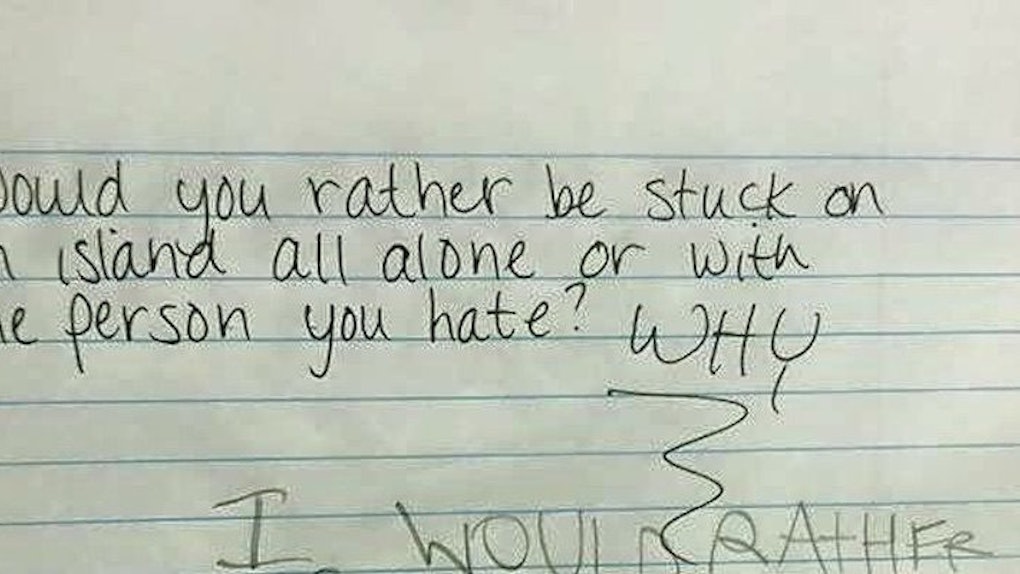 ould you rather be stuck on
island all alone or with
e person you hate? WHY
I WOULD RATHER